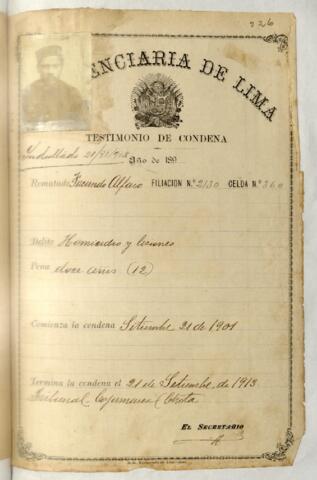 326
ENCIARIA DE LIMA
TESTIMONIO DE CONDENA
Indultado 28/VII/908
Año de 189
Rematado Facundo Alfaro FILIACION N.º 2130 CELDA N.º 360
Delito Homicidio y lesiones
Pena doce años (12)
Comienza la condena Setiembre 21 de 1901
Termina la condena el 21 de Setiembre de 1913
Tribunal Cajamarca Chota
EL SECRETARIO